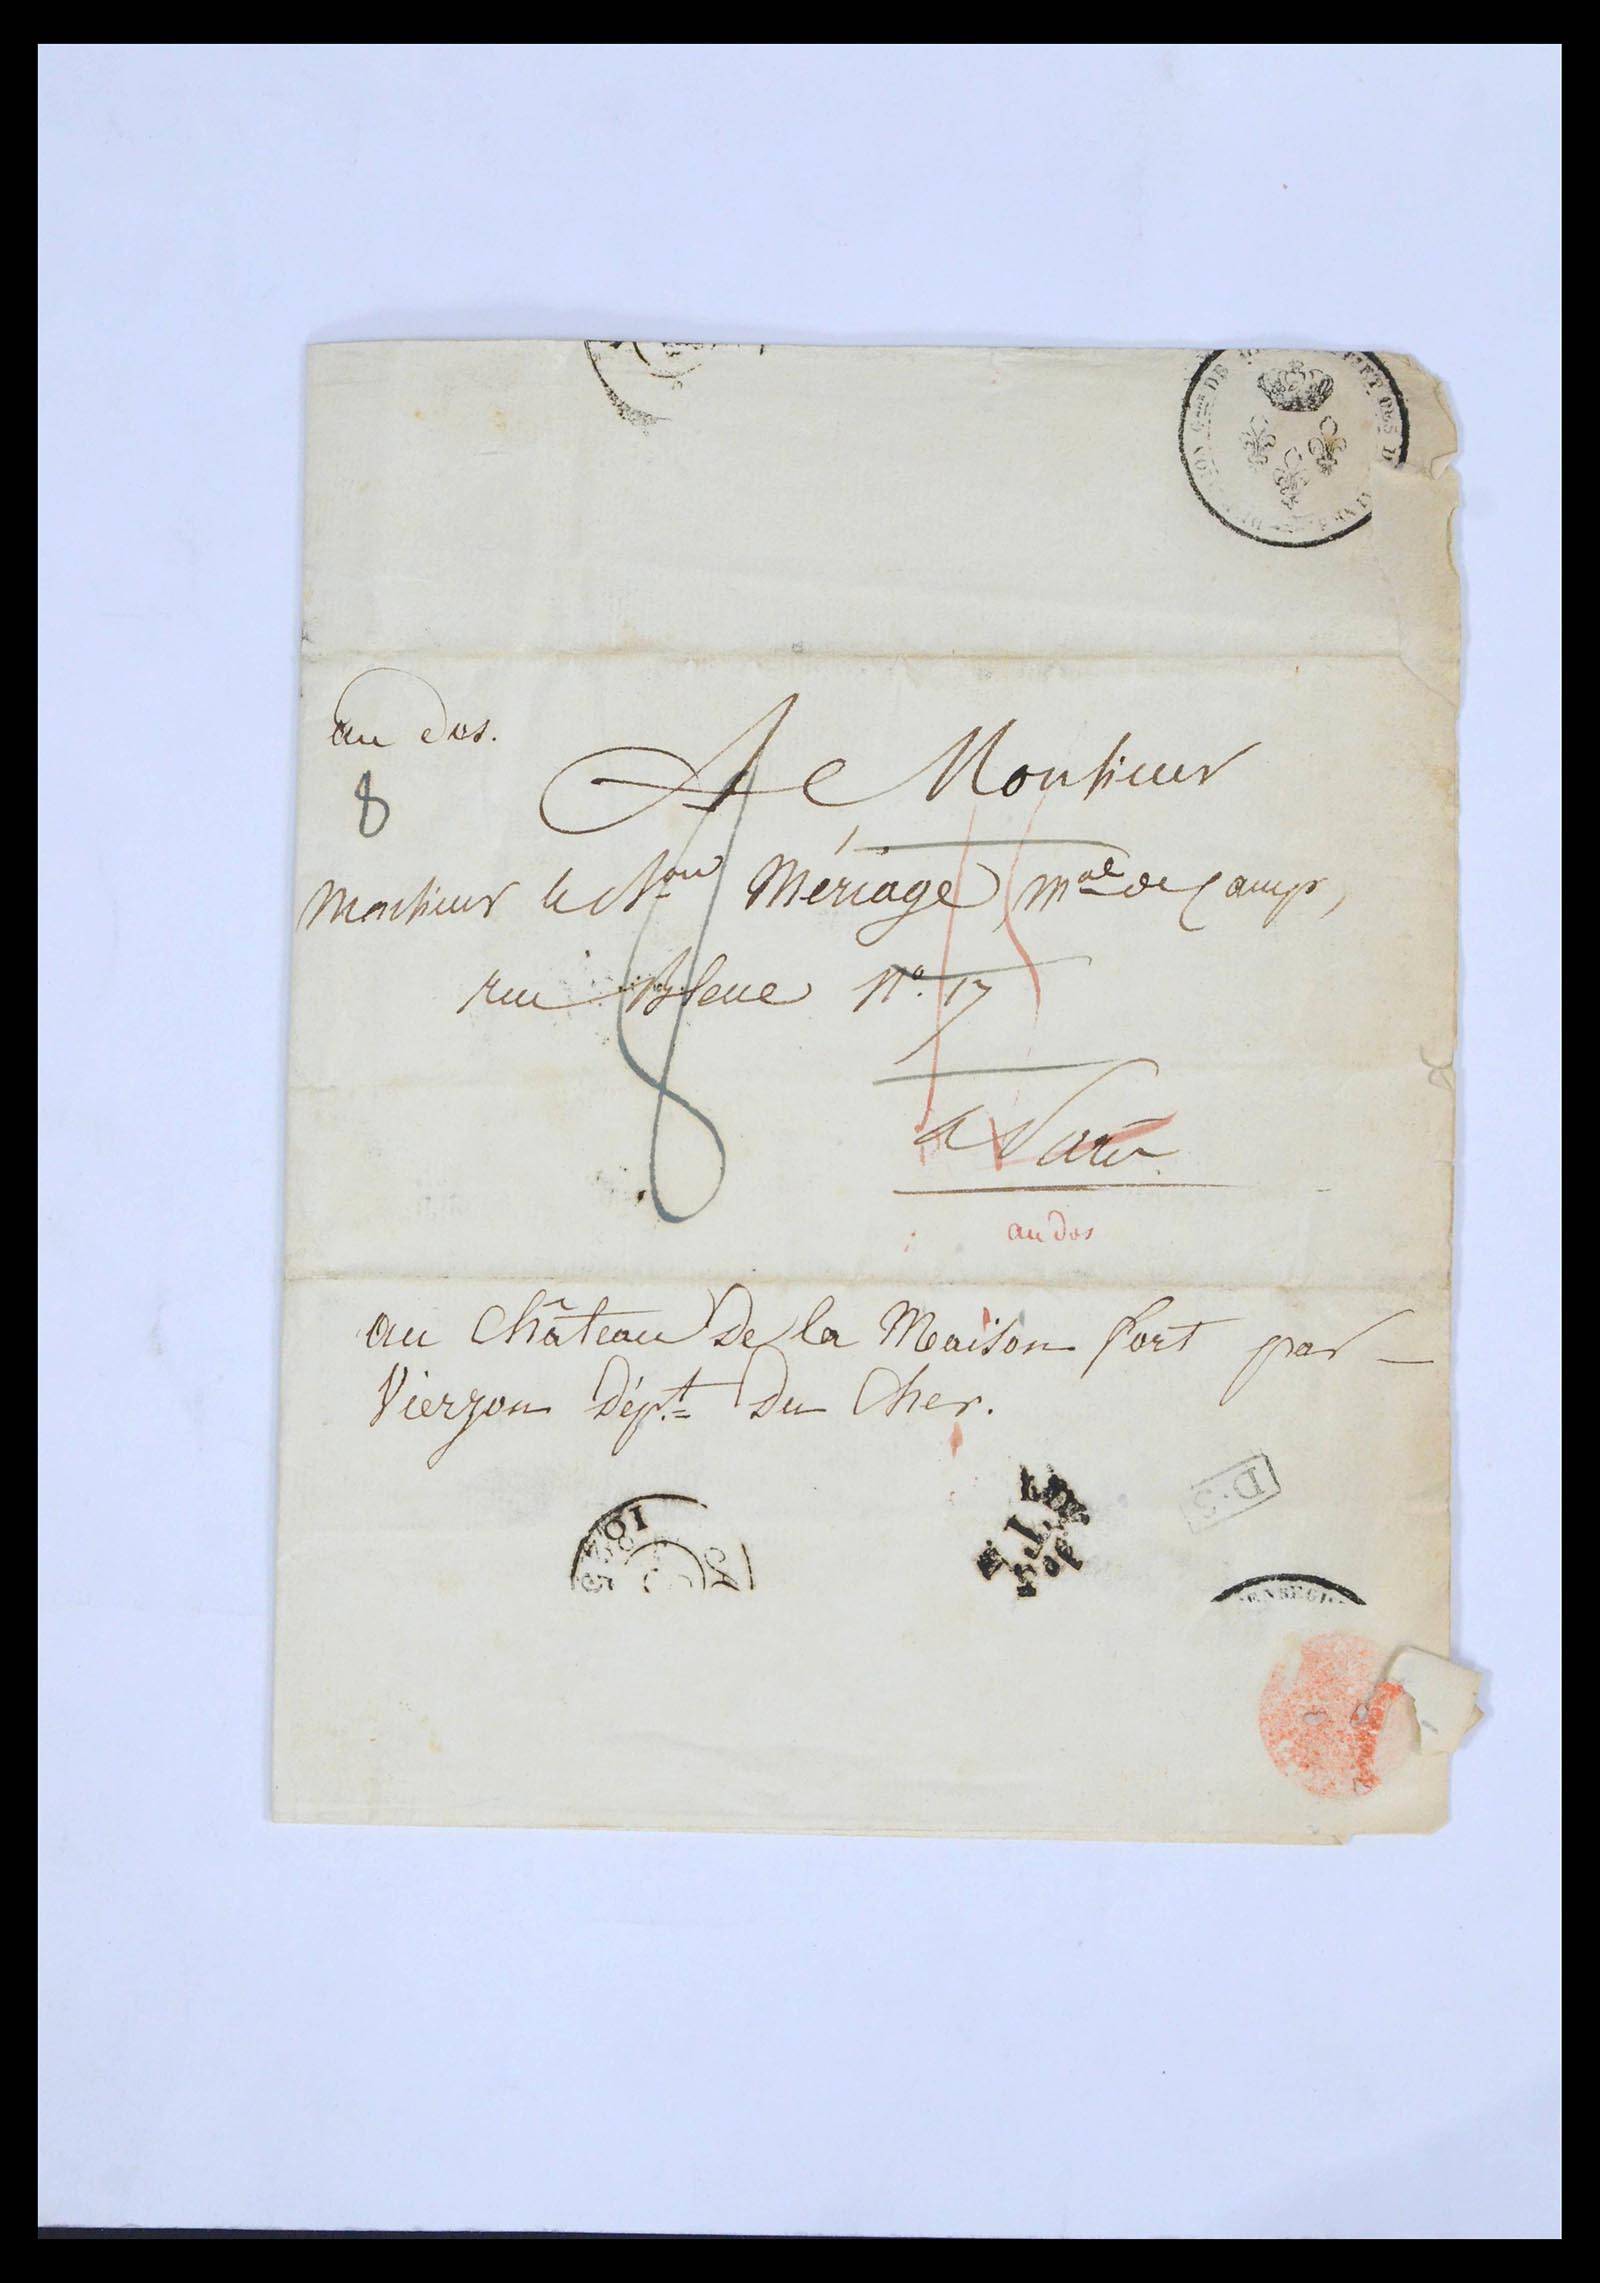 DE
ET DES D
au dos.
8
A Monsieur
Monsieur le Bon Mériage, Mal de Camp,
rue Bleue No. 17
8
15
à Paris
au dos
au Château de la Maison fort par
Vierzon Dépt. Du Cher.
D.S